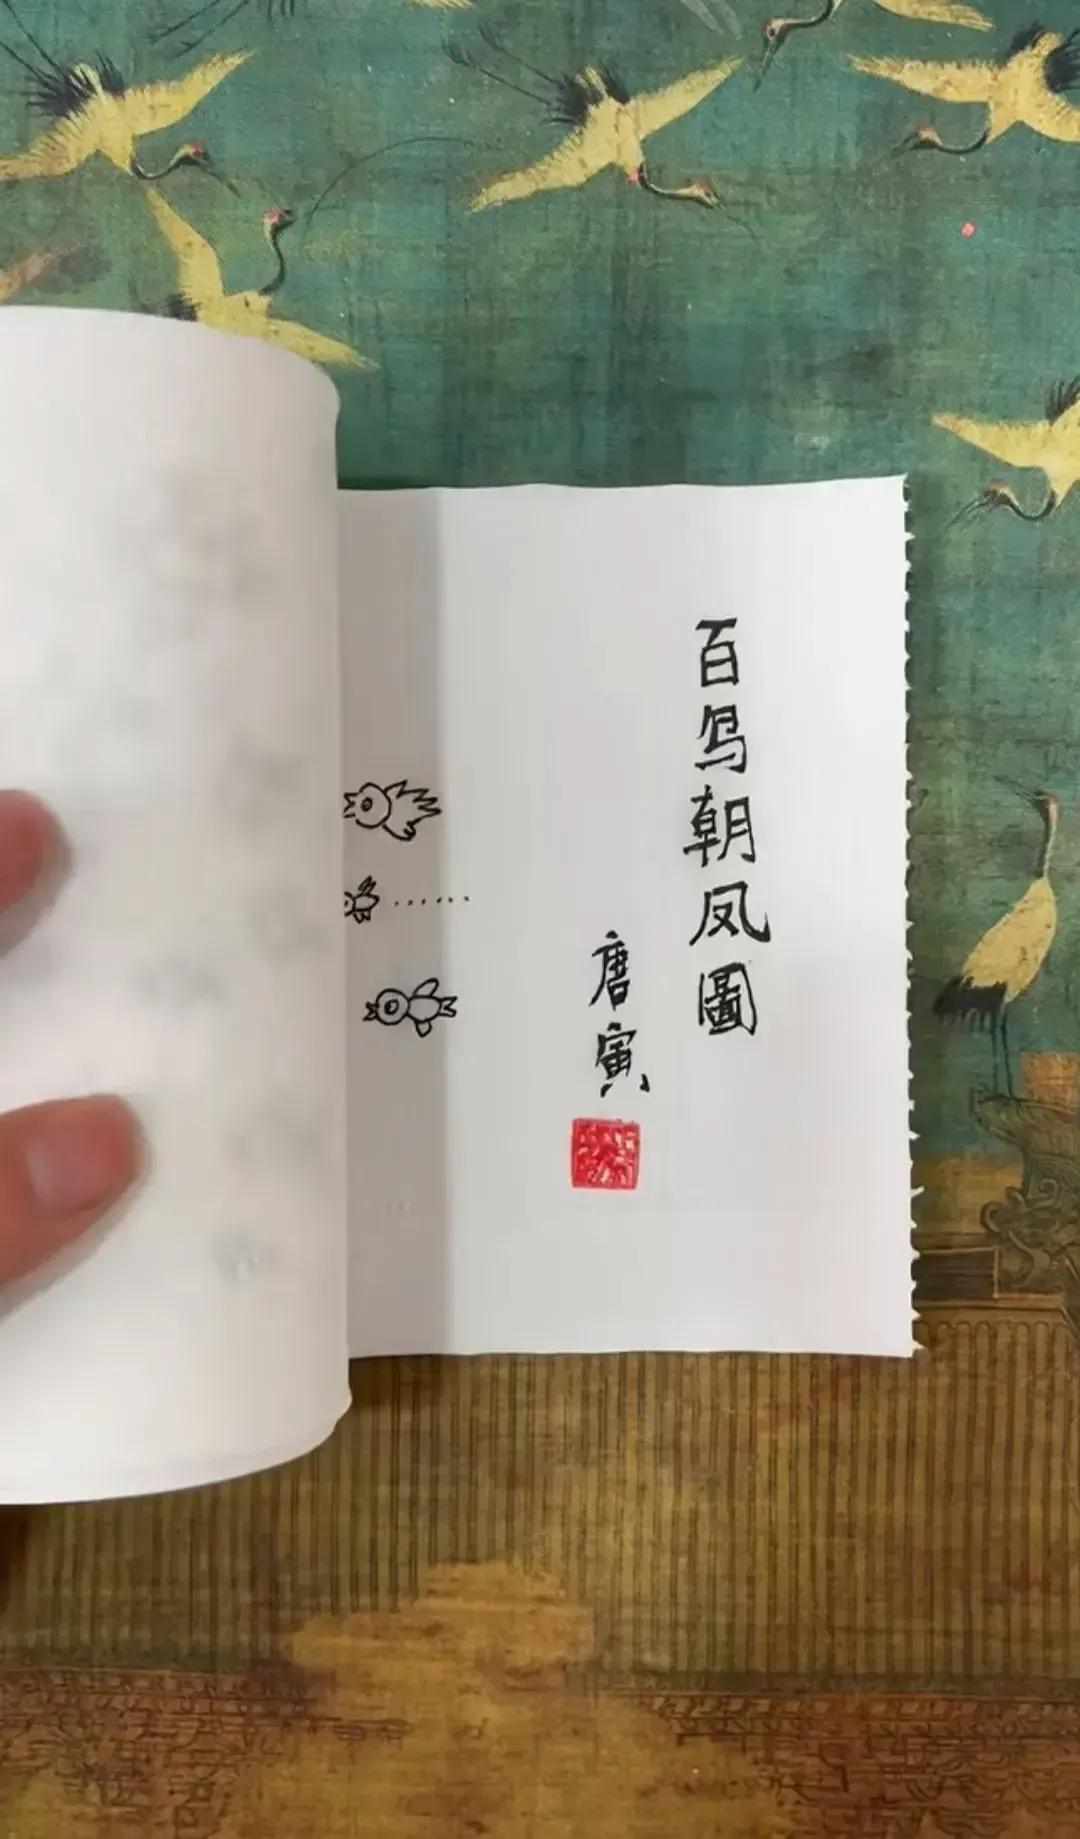 百鸟朝凤圖
唐寅